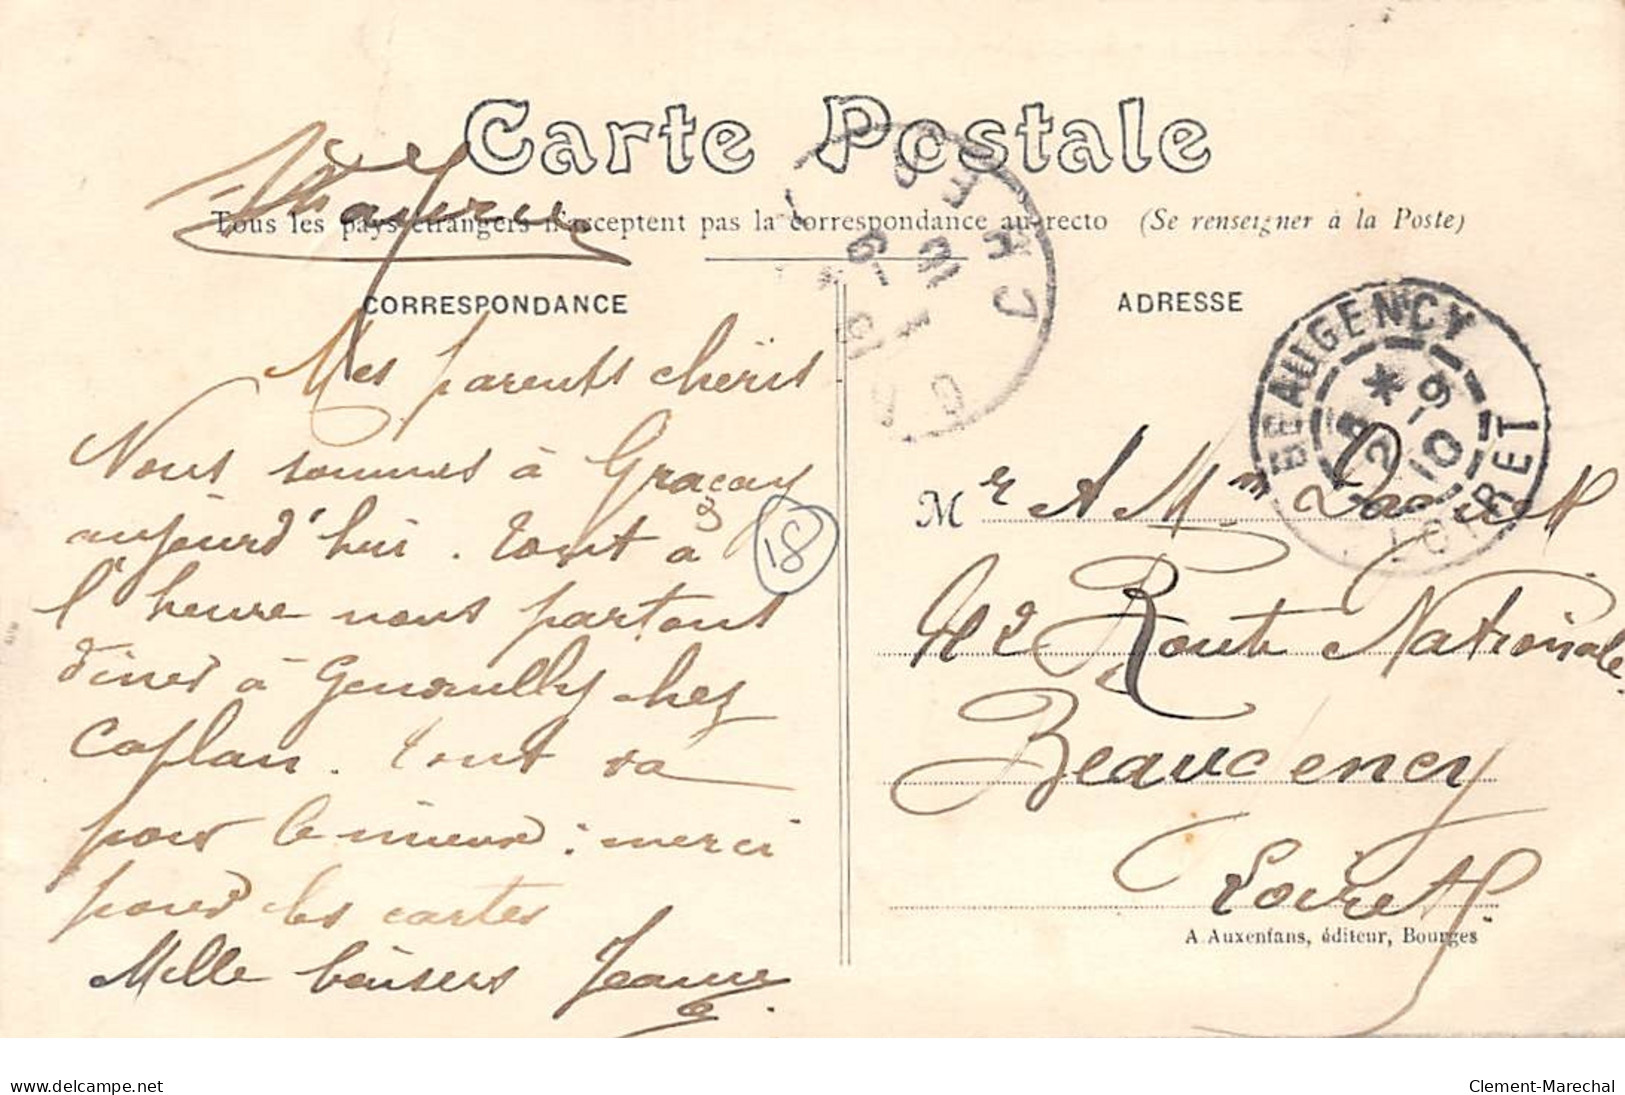 Carte Postale
Tous les pays étrangers n'acceptent pas la correspondance au recto (Se renseigner à la Poste)
CORRESPONDANCE
Mes parents chéris
Nous sommes à Graçay
aujourd'hui. Tout à
l'heure nous partons
diner à Genouilly chez
Caplan. Tout va
pour le mieux : merci
pour les cartes
Mille baisers Jeanne
18
ADRESSE
BEAUGENCY
LOIRET
Mr A Mme
42 Route Nationale
Beaugency
Loiret
A. Auxenfans, éditeur, Bourges
delcampe.net
Clement-Marechal